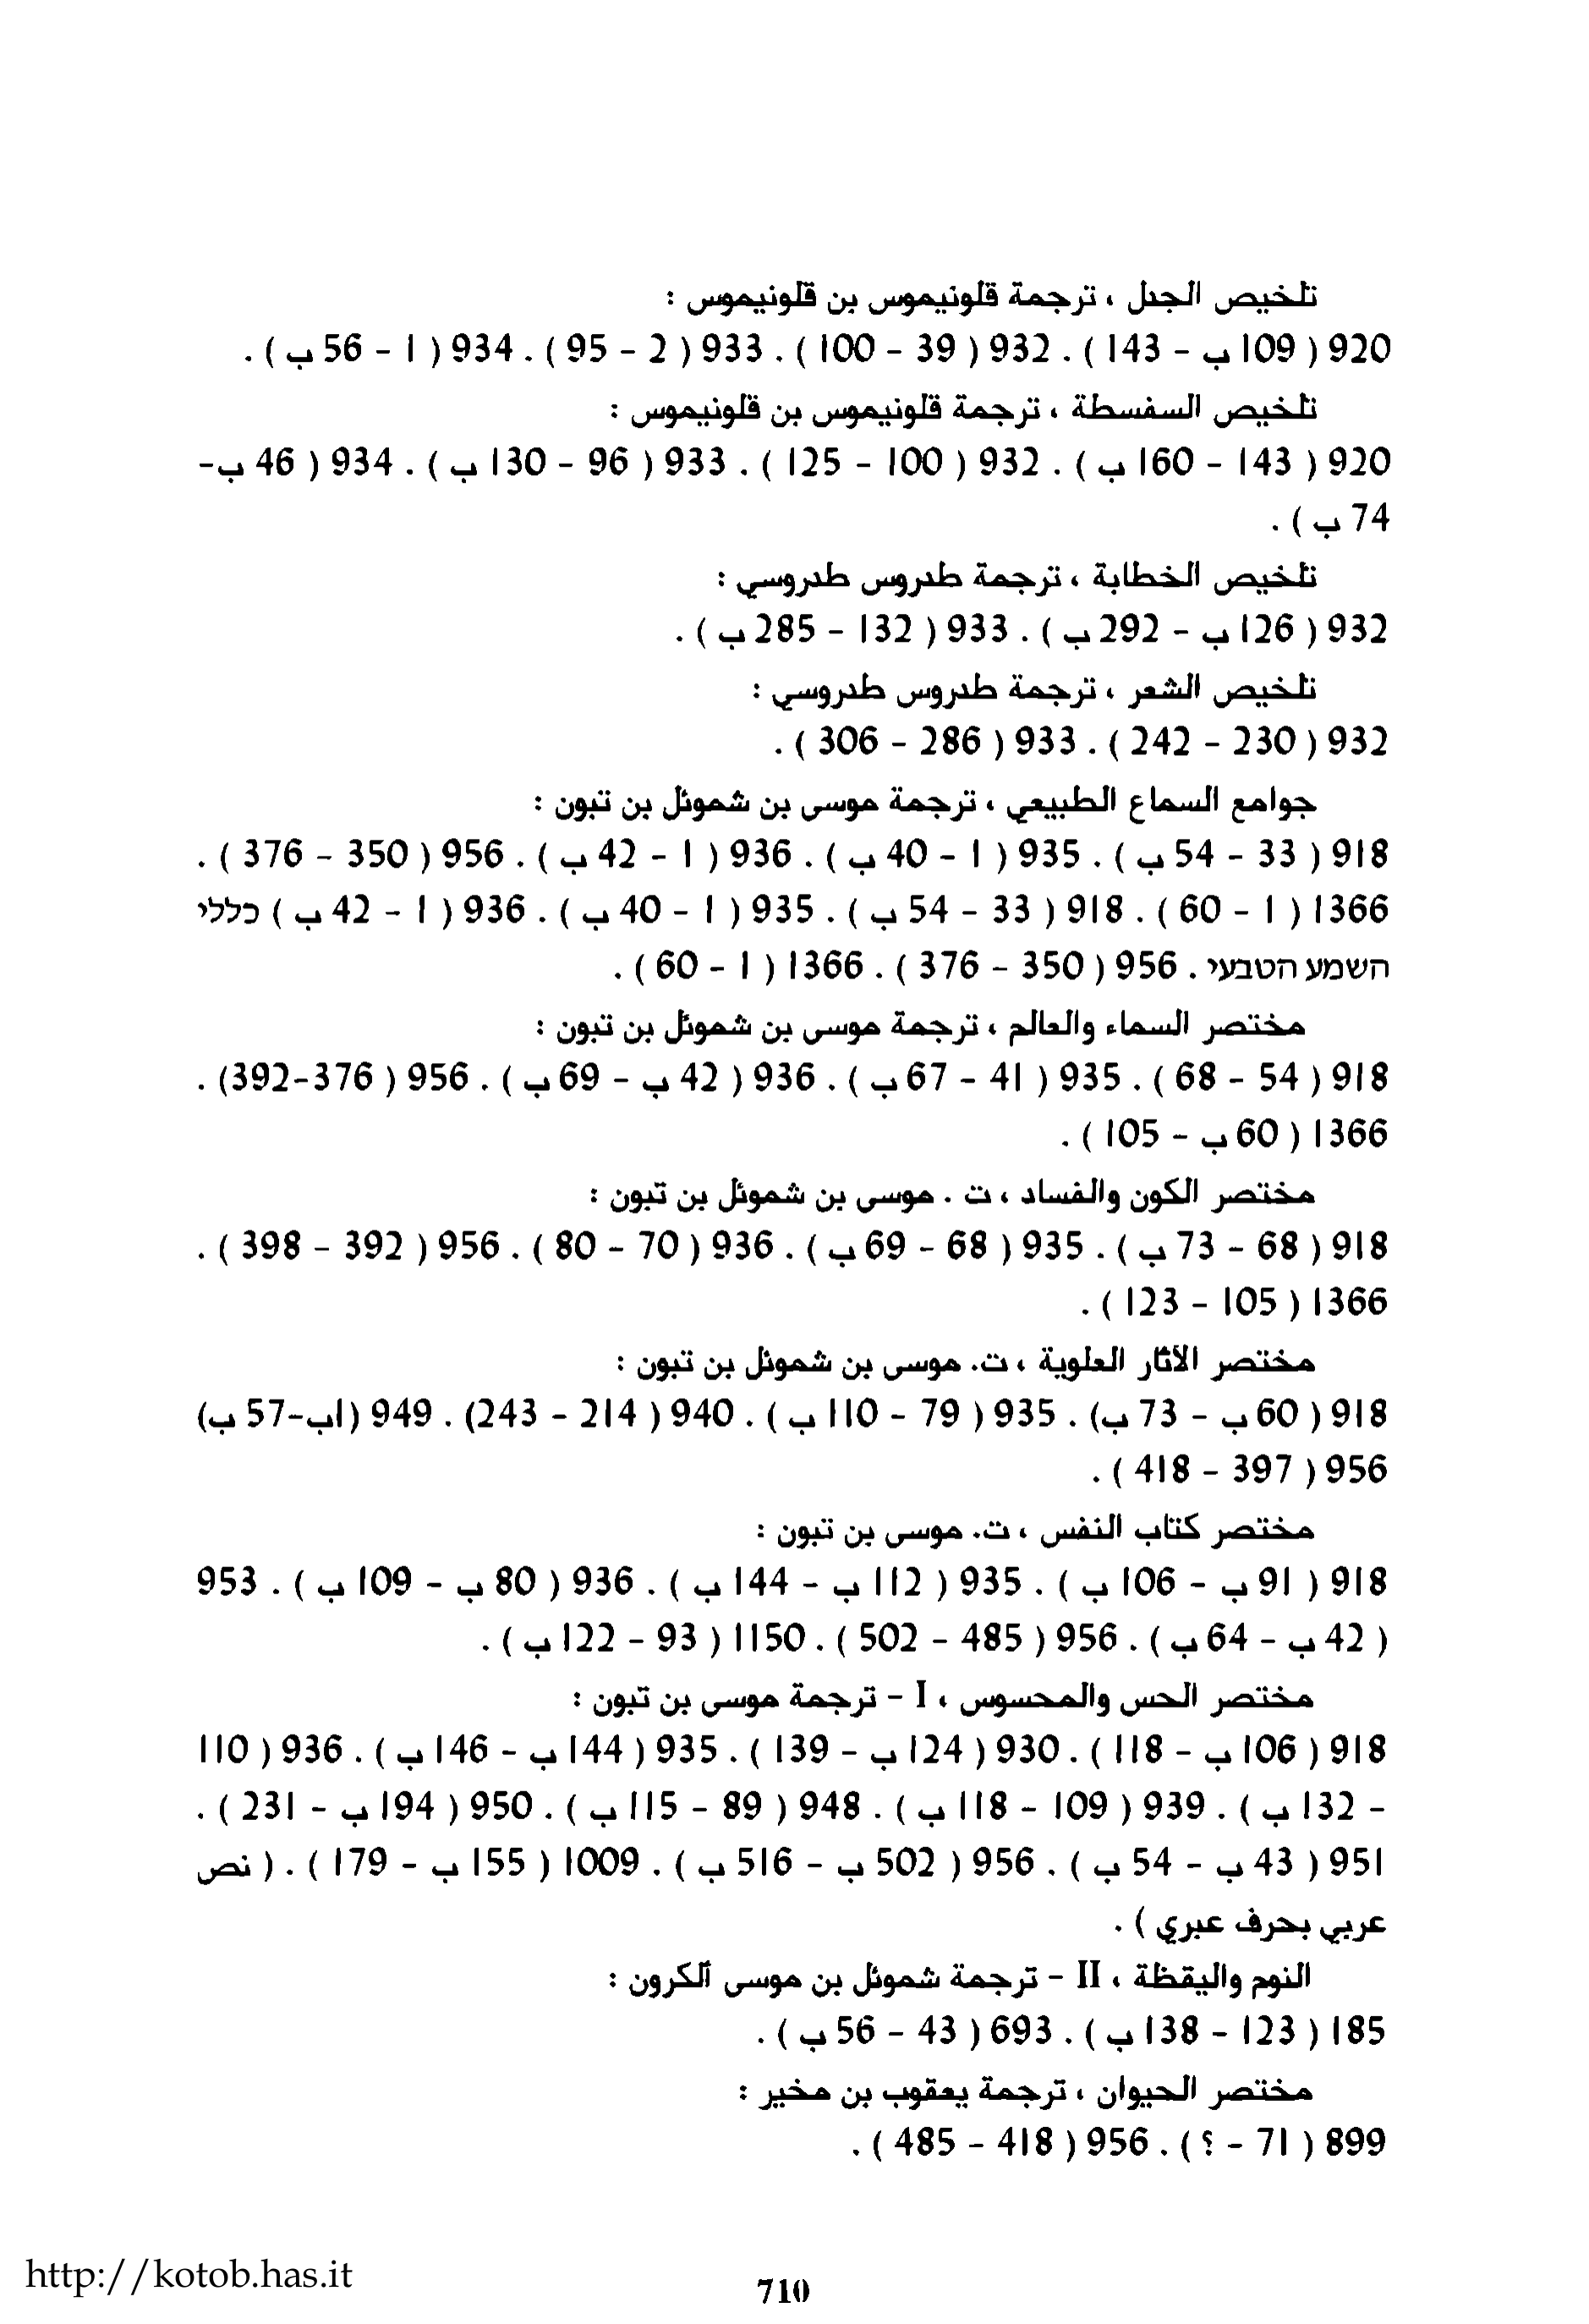 تلخيص الجدل ، ترجمة قلونيموس بن قلونيموس :
920 ( 109 ب – 143 ) . 932 ( 39 – 100 ) . 933 ( 2 – 95 ) . 934 ( 1 – 56 ب ) .
تلخيص السفسطة ، ترجمة قلونيموس بن قلونيموس :
920 ( 143 – 160 ب ) . 932 ( 100 – 125 ) . 933 ( 96 – 130 ب ) . 934 ( 46 ب–
74 ب ) .
تلخيص الخطابة ، ترجمة طدروس طدروسي :
932 ( 126 ب – 292 ب ) . 933 ( 132 – 285 ب ) .
تلخيص الشعر ، ترجمة طدروس طدروسي :
932 ( 230 – 242 ) . 933 ( 286 – 306 ) .
جوامع السماع الطبيعي ، ترجمة موسى بن شموئل بن تبون :
918 ( 33 – 54 ب ) . 935 ( 1 – 40 ب ) . 936 ( 1 – 42 ب ) . 956 ( 350 – 376 ) .
1366 ( 1 – 60 ) . 918 ( 33 – 54 ب ) . 935 ( 1 – 40 ب ) . 936 ( 1 – 42 ب ) כללי
השמע הטבעי . 956 ( 350 – 376 ) . 1366 ( 1 – 60 ) .
مختصر السماء والعالم ، ترجمة موسى بن شموئل بن تبون :
918 ( 54 – 68 ) . 935 ( 41 – 67 ب ) . 936 ( 42 ب – 69 ب ) . 956 ( 376–392) .
1366 ( 60 ب – 105 ) .
مختصر الكون والفساد ، ت . موسى بن شموئل بن تبون :
918 ( 68 – 73 ب ) . 935 ( 68 – 69 ب ) . 936 ( 70 – 80 ) . 956 ( 392 – 398 ) .
1366 ( 105 – 123 ) .
مختصر الآثار العلوية ، ت. موسى بن شموئل بن تبون :
918 ( 60 ب – 73 ب) . 935 ( 79 – 110 ب ) . 940 ( 214 – 243) . 949 (1ب–57 ب)
956 ( 397 – 418 ) .
مختصر كتاب النفس ، ت. موسى بن تبون :
918 ( 91 ب – 106 ب ) . 935 ( 112 ب – 144 ب ) . 936 ( 80 ب – 109 ب ) . 953
( 42 ب – 64 ب ) . 956 ( 485 – 502 ) . 1150 ( 93 – 122 ب ) .
مختصر الحس والمحسوس ، I – ترجمة موسى بن تبون :
918 ( 106 ب – 118 ) . 930 ( 124 ب – 139 ) . 935 ( 144 ب – 146 ب ) . 936 ( 110
– 132 ب ) . 939 ( 109 – 118 ب ) . 948 ( 89 – 115 ب ) . 950 ( 194 ب – 231 ) .
951 ( 43 ب – 54 ب ) . 956 ( 502 ب – 516 ب ) . 1009 ( 155 ب – 179 ) . ( نص
عربي بحرف عبري ) .
النوم واليقظة ، II – ترجمة شموئل بن موسى ألكرون :
185 ( 123 – 138 ب ) . 693 ( 43 – 56 ب ) .
مختصر الحيوان ، ترجمة يعقوب بن مخير :
899 ( 71 – ؟ ) . 956 ( 418 – 485 ) .
http://kotob.has.it
710